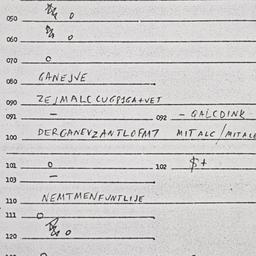 050 o
060 o
070 o
080 GANEJVE
090 ZEJMALCCUGPIGA+VET
091 – 092 – GALCDINK
100 DERGANEVZANTLOFM7 MITALC/MITALC
101 o 102 $+
103 –
110 NEMTMENFUNTLIJE
111 o
120 o